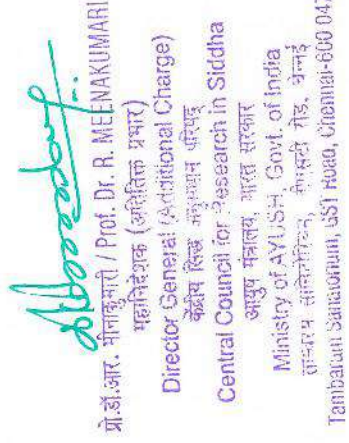 प्रो.डॉ.आर. मीनाकुमारी / Prof. Dr. R. MEENAKUMARI
महानिदेशक (अतिरिक्त प्रभार)
Director General (Additional Charge)
केंद्रीय सिद्ध अनुसंधान परिषद्
Central Council for Research in Siddha
आयुष मंत्रालय, भारत सरकार
Ministry of AYUSH, Govt. of India
रोड, चेन्नई
Tambaram Sanatorium, GST Road, Chennai-600 047